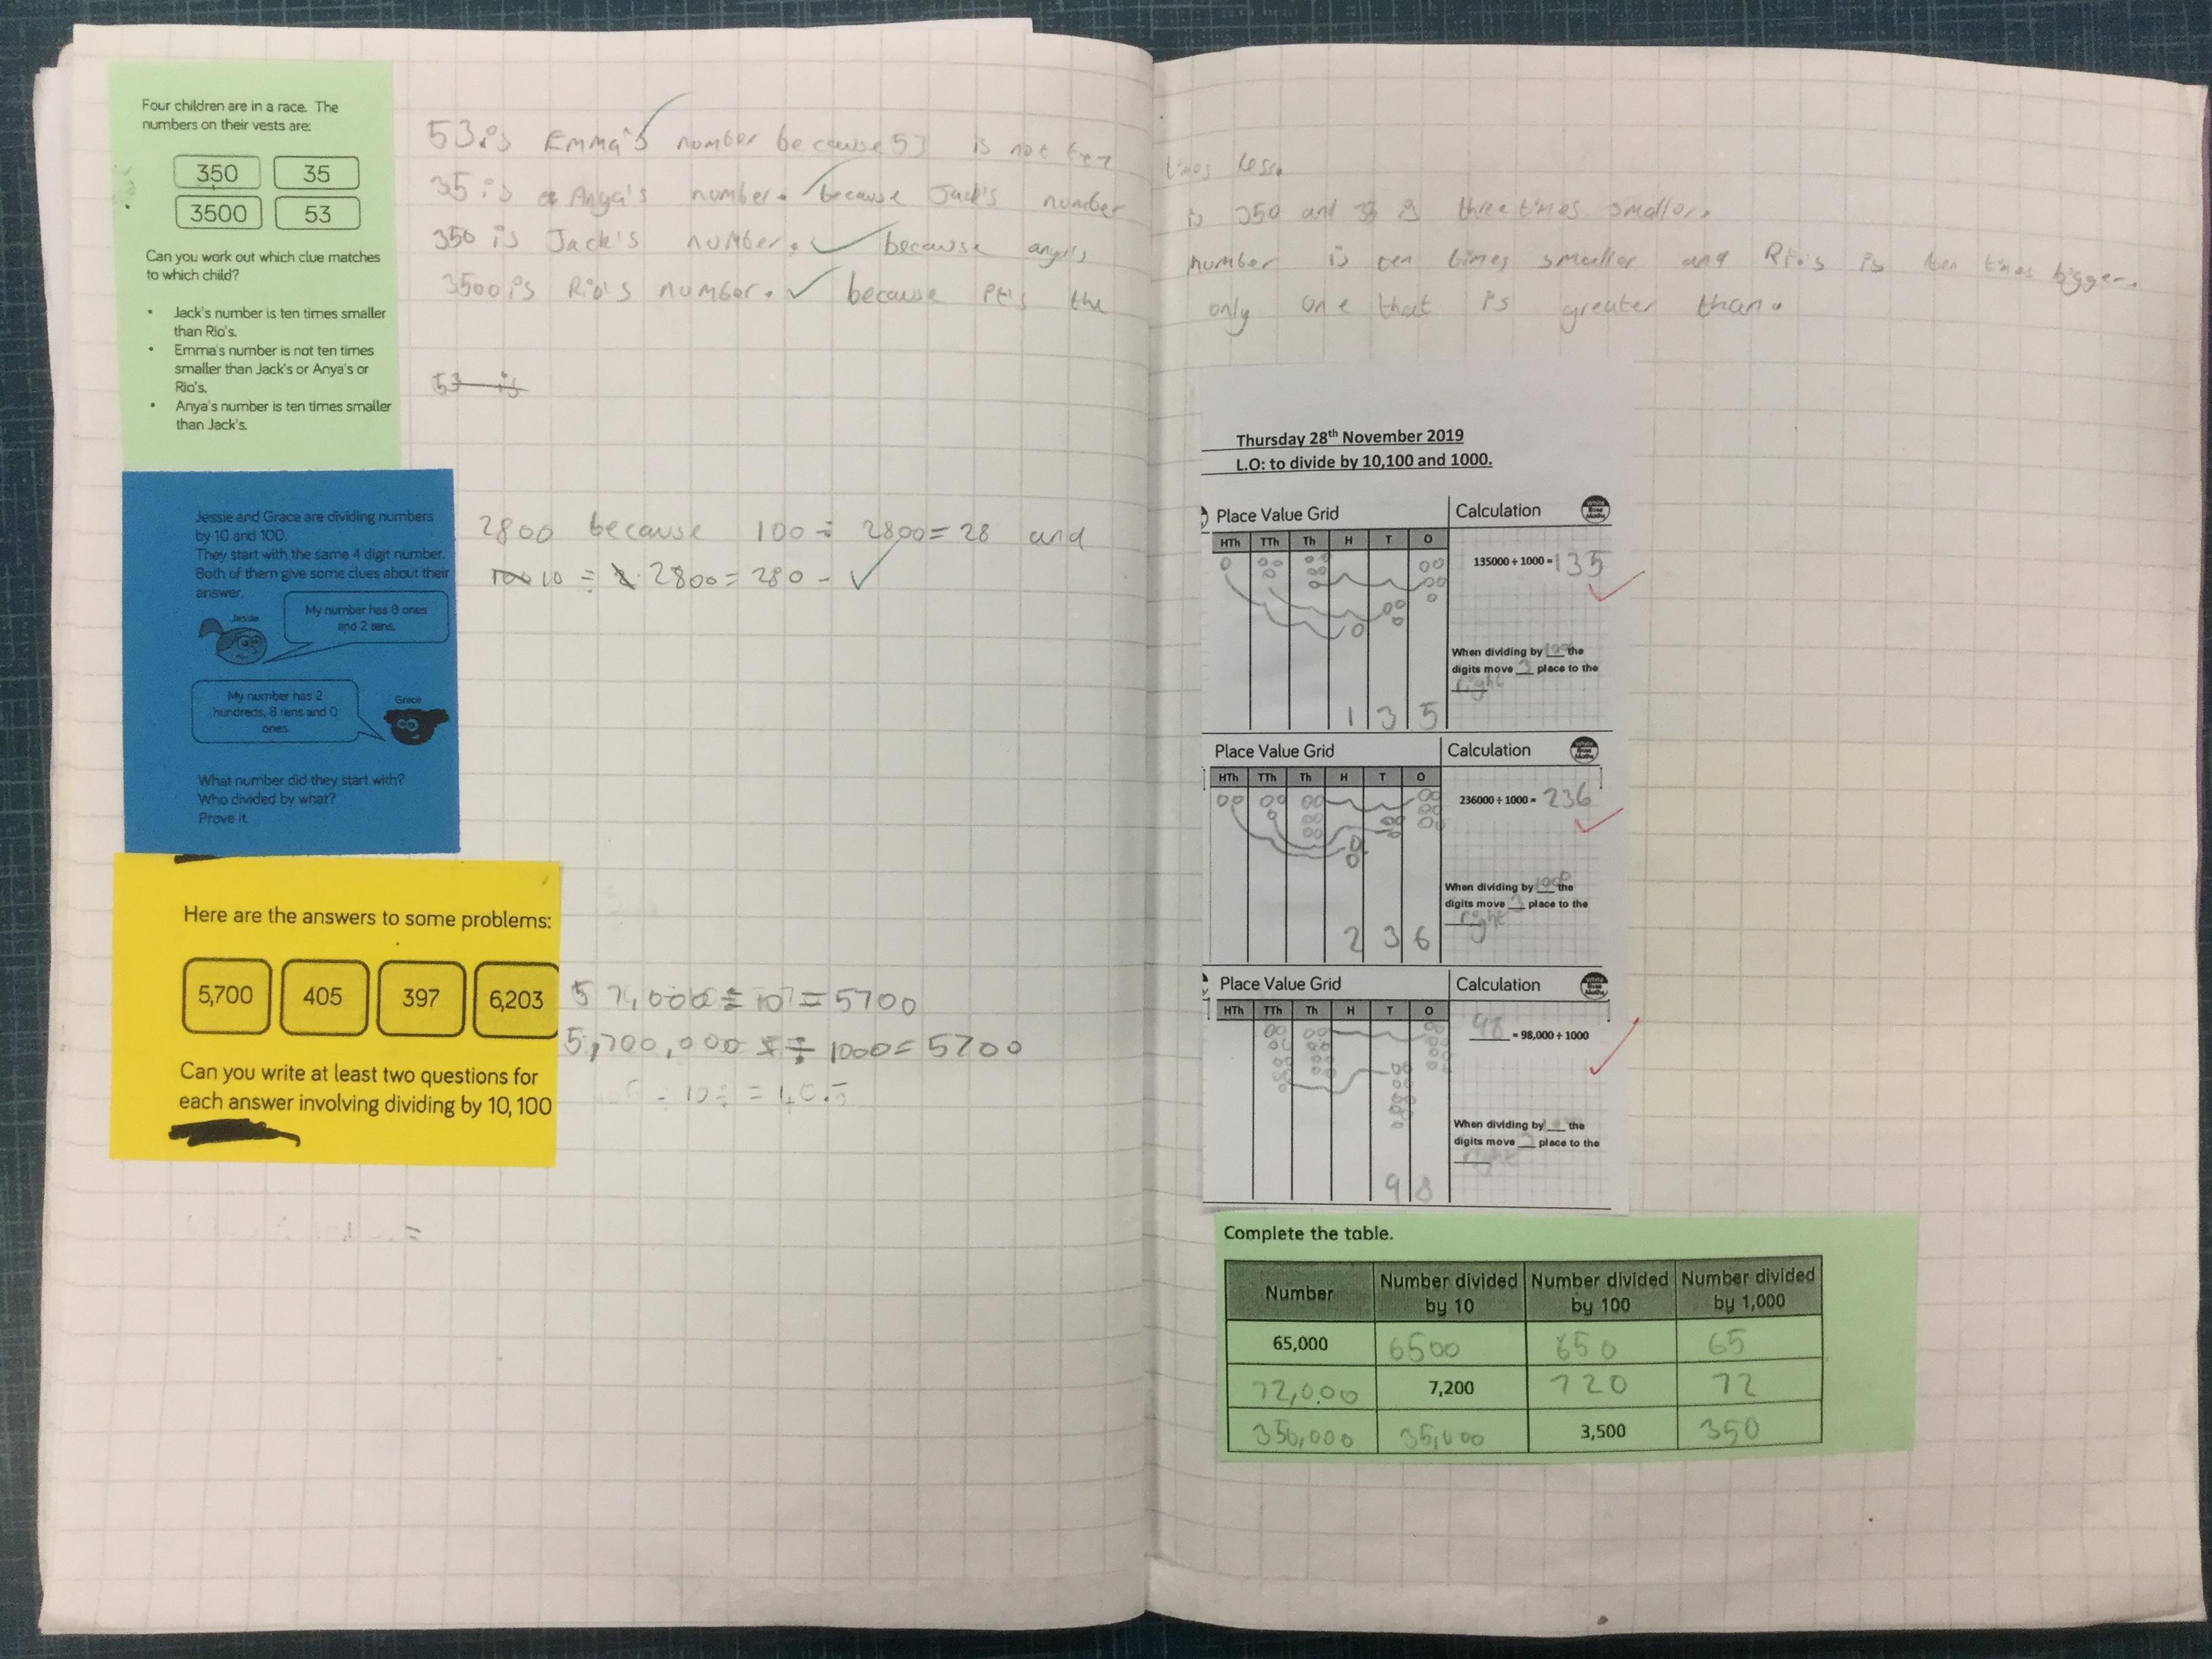 Four children are in a race. The
numbers on their vests are:
350 35
3500 53
Can you work out which clue matches
to which child?
• Jack's number is ten times smaller
than Rio's.
• Emma's number is not ten times
smaller than Jack's or Anya's or
Rio's.
• Anya's number is ten times smaller
than Jack's.
53 is Emma's number because 53 is not ten times less.
35 is Anya's number. because Jack's number is 350 and 35 is three times smaller.
350 is Jack's number. because anya's number is ten times smaller and Rio's is ten times bigger.
3500 is Rio's number. because it's the only one that is greater than.
53 is
Jessie and Grace are dividing numbers
by 10 and 100.
They start with the same 4 digit number.
Both of them give some clues about their
answer.
Jessie
My number has 8 ones
and 2 tens.
My number has 2
hundreds, 8 tens and 0
ones.
Grace
What number did they start with?
Who divided by what?
Prove it.
2800 because 100 ÷ 2800 = 28 and
100 10 ÷ 2800 = 280
Here are the answers to some problems:
5,700 405 397 6,203
Can you write at least two questions for
each answer involving dividing by 10, 100
57,000 ÷ 10 = 5700
5,700,000 ÷ 1000 = 5700
÷ 10 = 40.5
Thursday 28th November 2019
L.O: to divide by 10,100 and 1000.
Place Value Grid Calculation
White Rose Maths
HTh TTh Th H T O
135000 ÷ 1000 = 135
When dividing by 1000 the
digits move 3 place to the
right
1 3 5
Place Value Grid Calculation
White Rose Maths
HTh TTh Th H T O
236000 ÷ 1000 = 236
When dividing by 1000 the
digits move 3 place to the
right
2 3 6
Place Value Grid Calculation
White Rose Maths
HTh TTh Th H T O
98 = 98,000 ÷ 1000
When dividing by the
digits move place to the
right
9 8
Complete the table.
Number Number divided by 10 Number divided by 100 Number divided by 1,000
65,000 6500 650 65
72,000 7,200 720 72
350,000 35,000 3,500 350